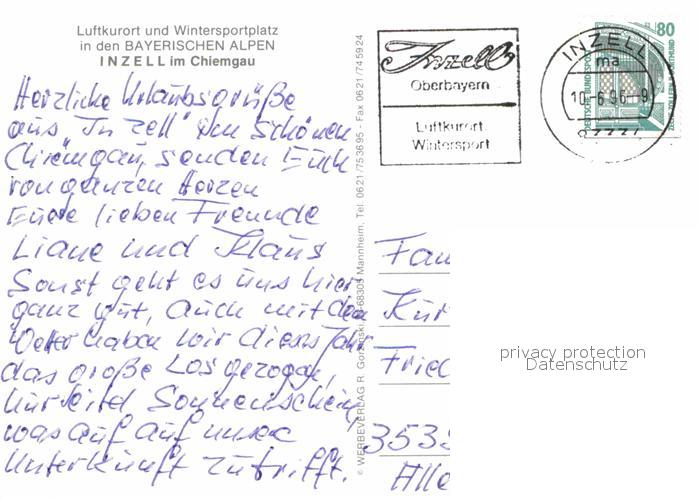 Luftkurort und Wintersportplatz
in den BAYERISCHEN ALPEN
INZELL im Chiemgau
Herzliche Urlaubsgrüße
aus "Inzell" im schönen
Chiemgau, senden Euch
von ganzen Herzen
Eure lieben Freunde
Liane und Klaus
Sonst geht es uns hier
ganz gut, auch mit dem
Wetter haben wir dieses Jahr
das große Los gezogen,
nur Sonnenschein
was auf auf unsere
Unterkunft zutrifft.
© WERBEVERLAG R. 68305 Mannheim, Tel. 0621/753695 - Fax 0621/745924
Inzell
Oberbayern
Luftkurort
Wintersport
INZELL
ma
10.-6.96-9
80
DEUTSCHE BUNDESPOST
Fam
Kur
Fried
3535
Alle
privacy protection
Datenschutz